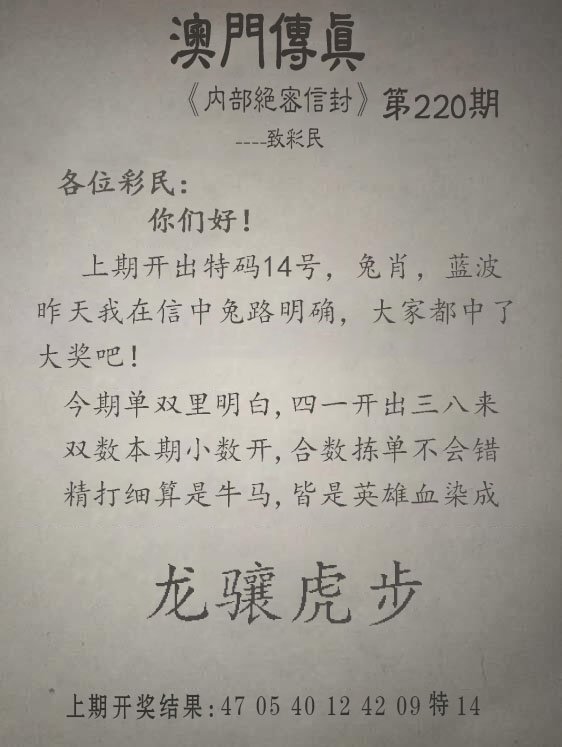 澳門傳眞
《内部絕密信封》第220期
----致彩民
各位彩民：
你们好！
上期开出特码14号，兔肖，蓝波
昨天我在信中兔路明确，大家都中了
大奖吧！
今期单双里明白,四一开出三八来
双数本期小数开,合数拣单不会错
精打细算是牛马,皆是英雄血染成
龙骧虎步
上期开奖结果:47 05 40 12 42 09 特 14